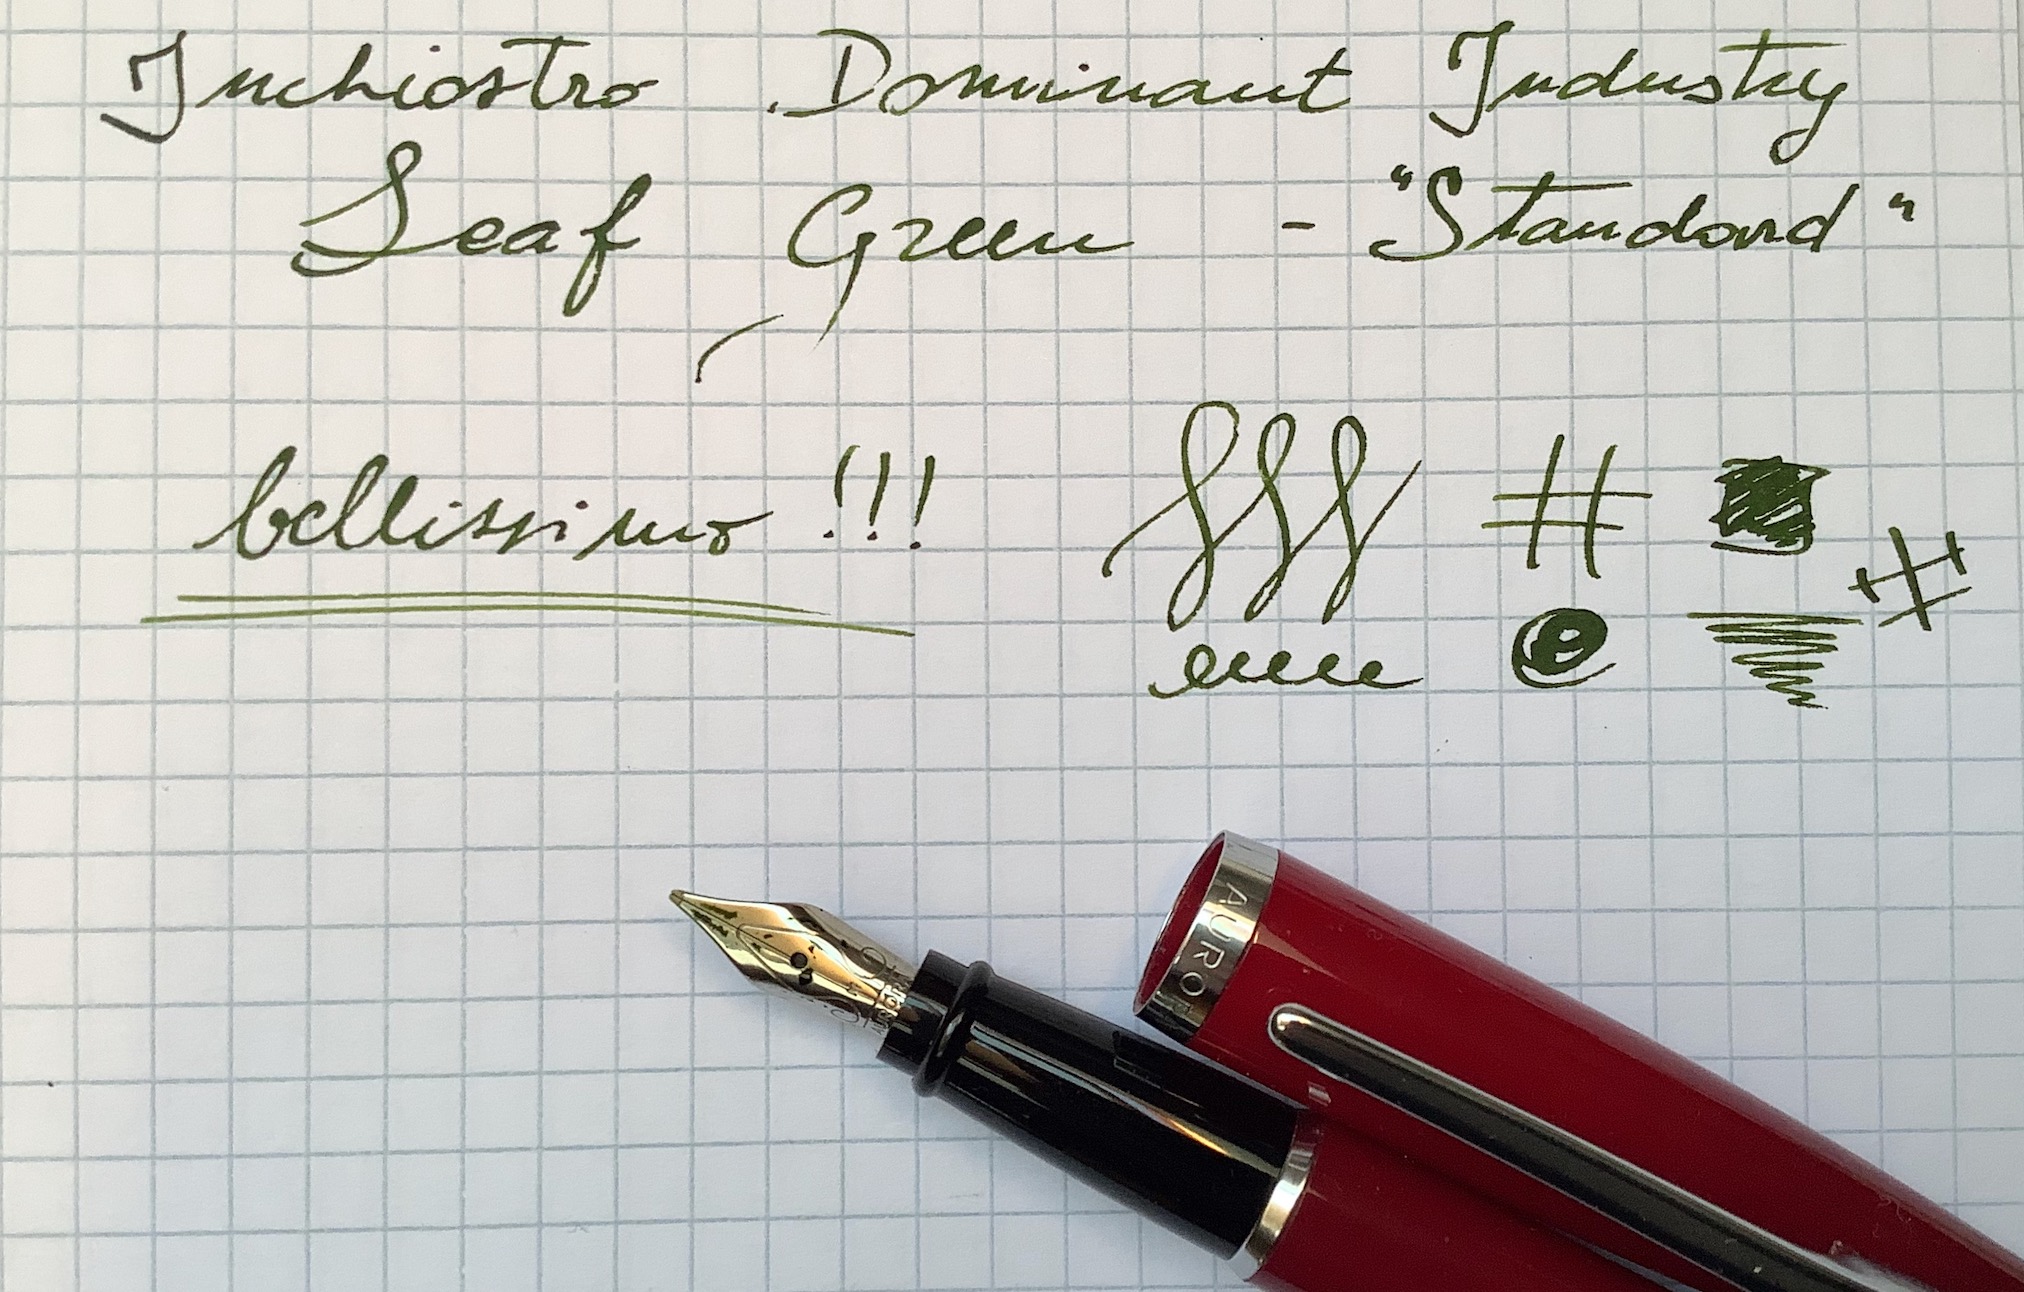 Inchiostro Dominant Industry
Leaf Green - "Standard"
bellissimo !!!
#
AURO